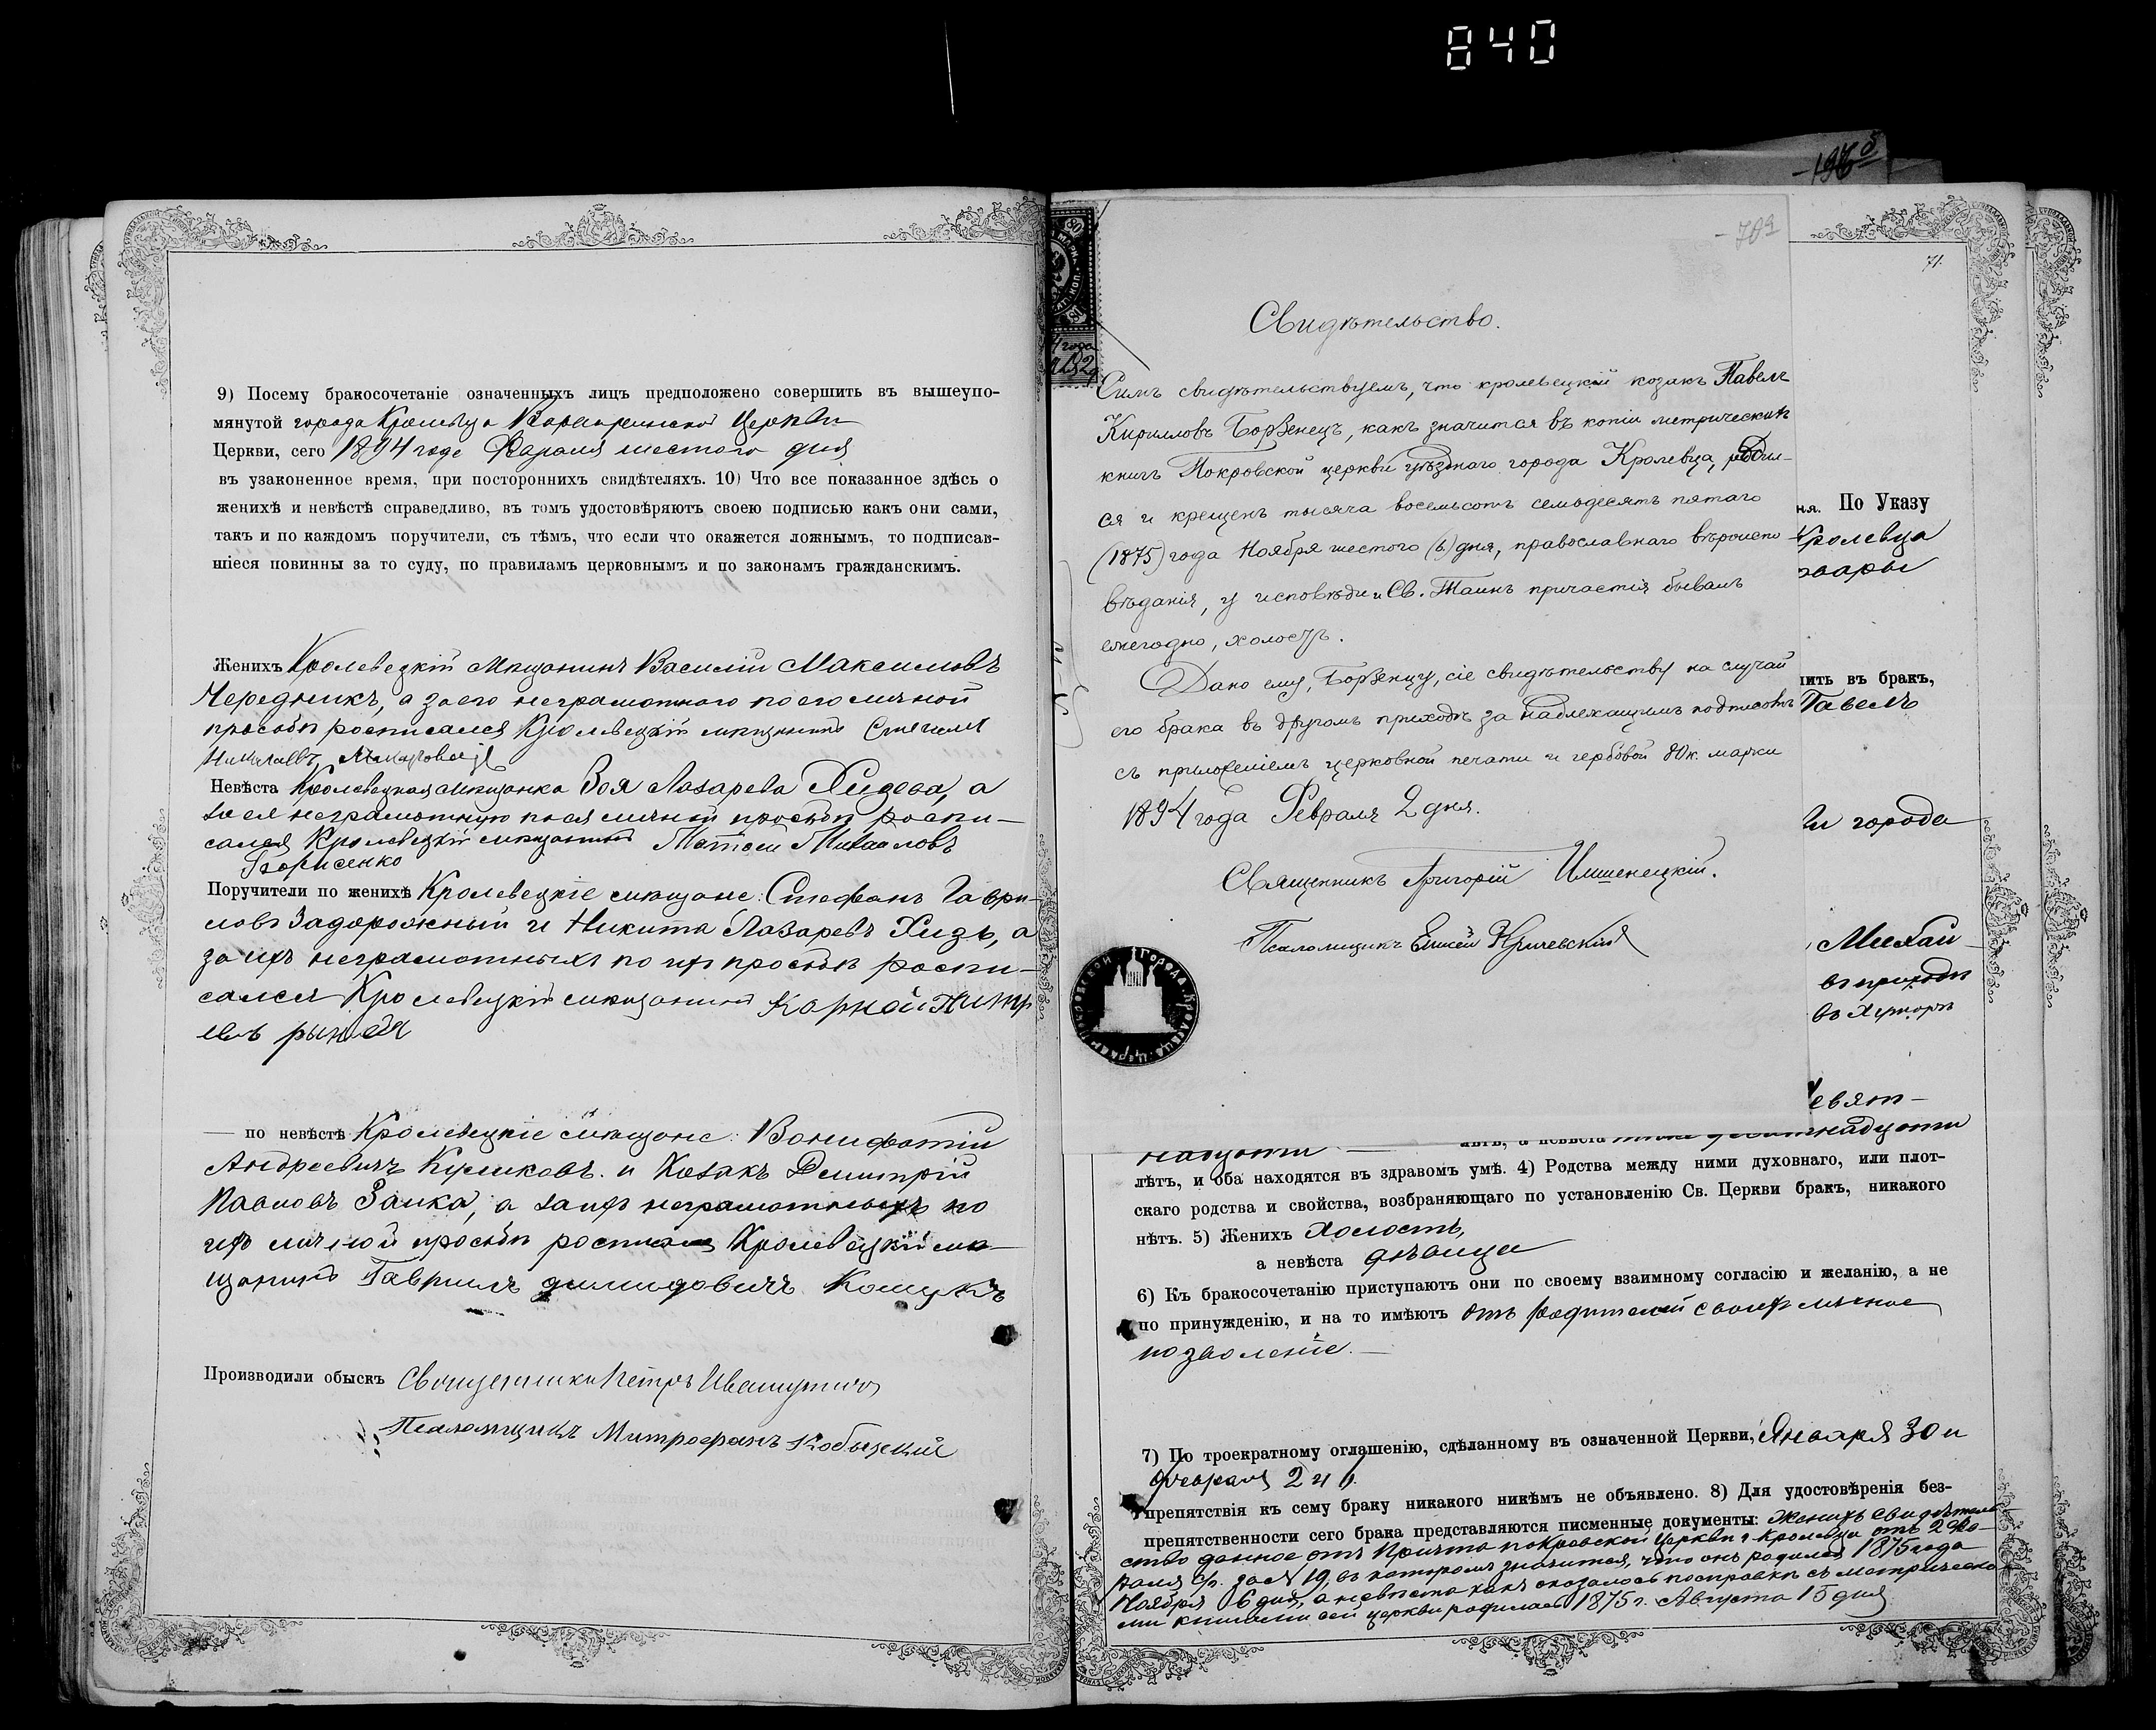 840
9) Посему бракосочетаніе означенныхъ лицъ предположено совершить въ вышеупо-
мянутой города Кролевца Варваринской Церкви
Церкви, сего 1894 года Февраля шестого дня
въ узаконенное время, при постороннихъ свидѣтеляхъ. 10) Что все показанное здѣсь о
женихѣ и невѣстѣ справедливо, въ томъ удостовѣряютъ своею подписью какъ они сами,
такъ и по каждомъ поручители, съ тѣмъ, что если что окажется ложнымъ, то подписав-
шіеся повинны за то суду, по правиламъ церковнымъ и по законамъ гражданскимъ.
Женихъ Кролевецкій мѣщанинъ Василій Максимовъ
Чередникъ, а за его неграмотного по его личной
просьбѣ росписался Кролевецкій мѣщанинъ
Невѣста Кролевецкая мѣщанка Зоя Лазарева Хидева, а
за ея неграмотную по ея личной просьбѣ роспи-
сался Кролевецкій мѣщанинъ Матвей Михаиловъ
Борисенко
Поручители по женихѣ Кролевецкіе мѣщане: Стефанъ Гаври-
ловъ Задорожный и Никита Лазаревъ Хидь, а
за ихъ неграмотныхъ по ихъ просьбѣ роспи-
сался Кролевецкій мѣщанинъ
— по невѣстѣ Кролевецкіе мѣщане: Вонифатій
Андреевичъ Куликовъ и Козакъ Димитрій
Павловъ Заика, а за ихъ неграмотныхъ по
ихъ личной просьбѣ росписался Кролевецкій мѣ-
щанинъ Гавриилъ Кошукъ
Производили обыскъ Священникъ Петръ
Псаломщикъ Митрофанъ Кобыцкій
-196
- 709
71.
Свидѣтельство.
Симъ свидѣтельствуемъ, что кролевецкій козакъ Павелъ
Кирилловъ Борзенецъ, какъ значится въ копіи метрическихъ
книгъ Покровской церкви уѣзднаго города Кролевца, родил-
ся и крещенъ тысяча восемьсотъ семьдесятъ пятаго
(1875) года Ноября шестого (6) дня, православнаго вѣроиспо
вѣданія, у исповѣди и Св. Таинъ причастія бывалъ
ежегодно, холостъ.
Дано ему, Борзенцу, сіе свидѣтельство на случай
его брака въ другомъ приходѣ за надлежащимъ подписомъ
съ приложеніемъ церковной печати и гербовой 80 к. марки
1894 года Февраля 2 дня.
Священникъ Григорій Илшенецкій.
Псаломщикъ Елисей
ня. По Указу
Кролевца
вары
пить въ бракъ,
Павелъ
ли города
Михаи
въ приходѣ
въ Хуторѣ
девят-
надцати — лѣтъ, а невѣста тоже девятнадцати
лѣтъ, и оба находятся въ здравомъ умѣ. 4) Родства между ними духовнаго, или плот-
скаго родства и свойства, возбраняющаго по установленію Св. Церкви бракъ, никакого
нѣтъ. 5) Женихъ холостъ,
а невѣста дѣвица
6) Къ бракосочетанію приступаютъ они по своему взаимному согласію и желанію, а не
по принужденію, и на то имѣютъ отъ родителей своихъ личное
позволеніе.
7) По троекратному оглашенію, сдѣланному въ означенной Церкви, Января 30 и
Февраля 2 и 6.
препятствія къ сему браку никакого никѣмъ не объявлено. 8) Для удостовѣренія без-
препятственности сего брака представляются писменные документы: Женихъ свидѣтель
ство данное отъ Причта покровской Церкви г. Кролевца отъ 2 Фев-
раля с/г. за № 19, въ которомъ значится, что онъ родился 1875 года
Ноября 6 дня, а невѣста какъ оказалось по справкѣ съ метрическо
ми книгами сей церкви родилась 1875 г. Августа 15 дня